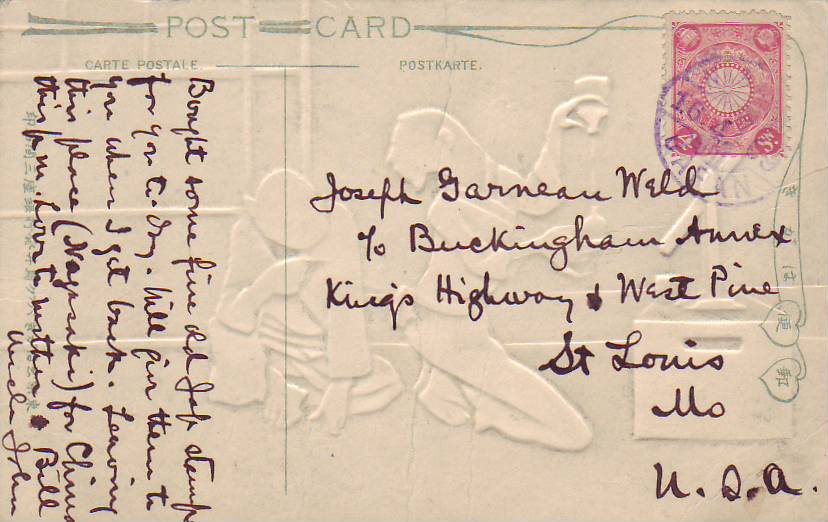 POST CARD
CARTE POSTALE.
POSTKARTE.
Joseph Garneau Weld
c/o Buckingham Annex
Kings Highway & West Pine
St Louis
Mo
U. S. A.
Bought some fine old Jap stamps
for you to-day. Will give them to
you when I get back. Leaving
this place (Nagasaki) for China
this p.m. Love to mother & Bill
Uncle John
4 Sn.
JAPAN